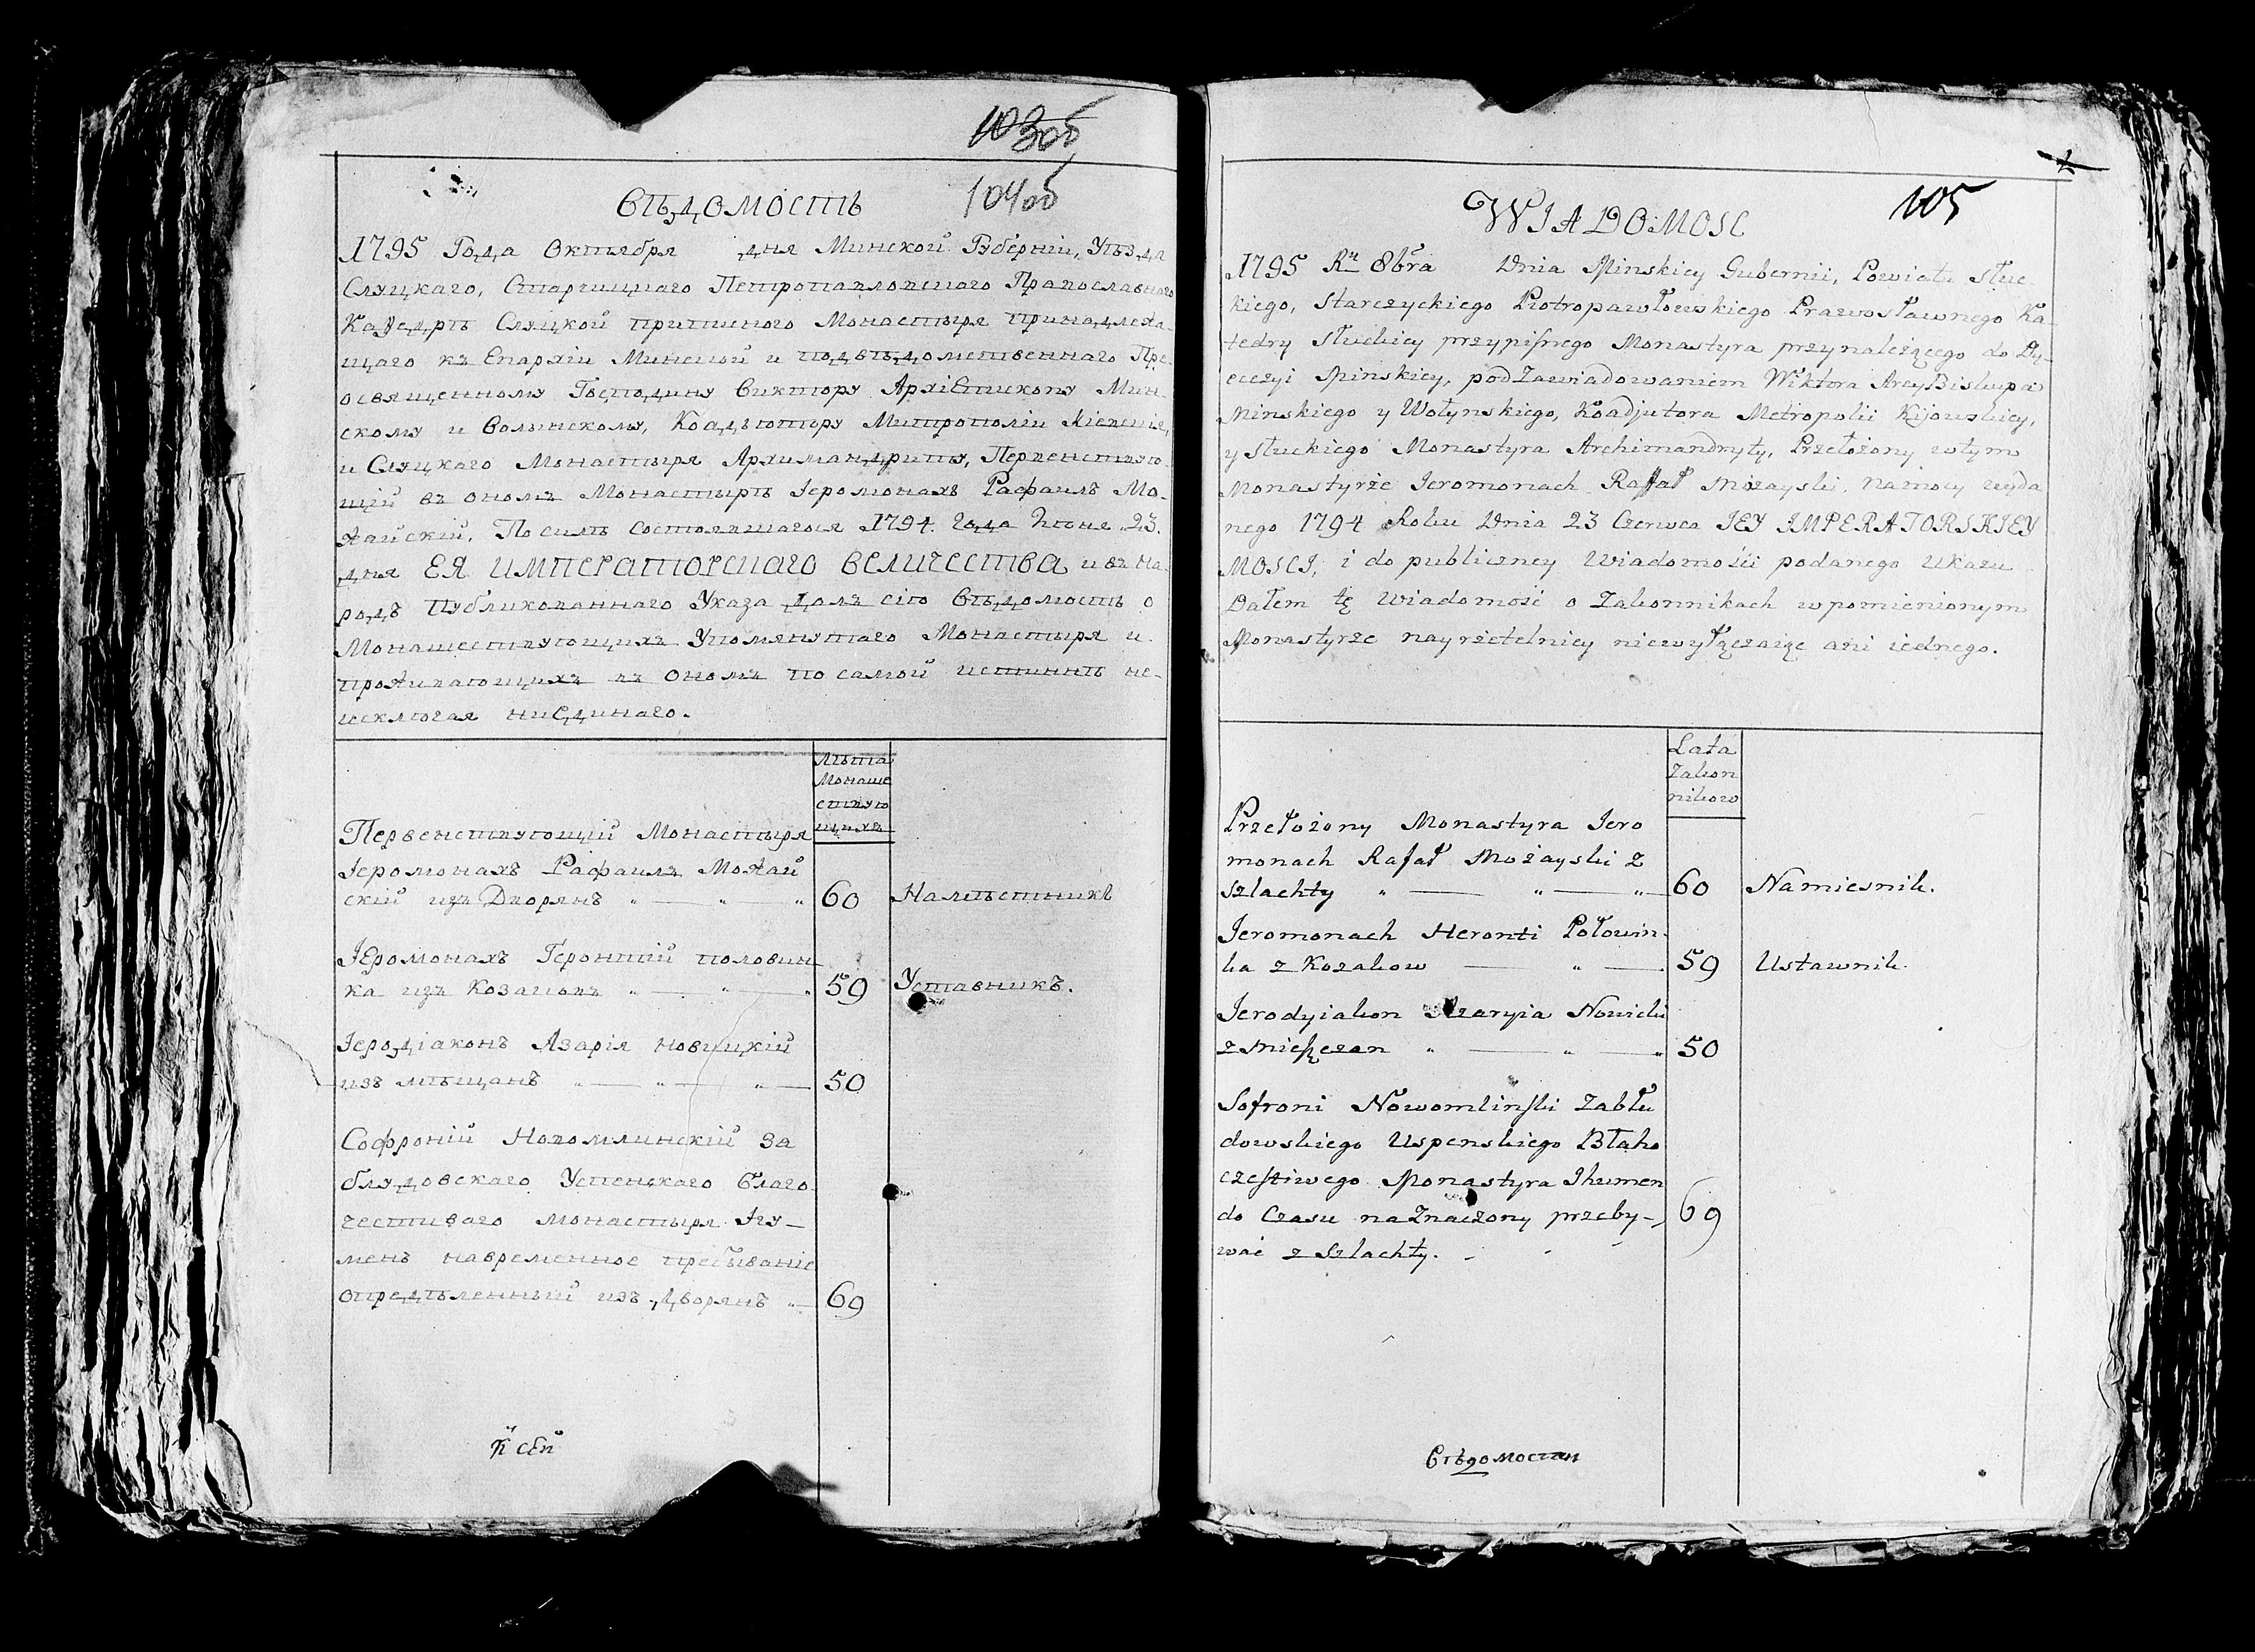 103об
104об
Вѣдомость
1795 Года Октября дня Минской Губерніи, Уѣзда
Слуцкаго, Старчицкаго Петропавловского Православного
Каѳедрѣ Слуцкой приписного Монастыря принадлежа-
щаго къ Епархіи Минской и подвѣдомственнаго Пре-
освященному Господину Виктору АрхіЕпископу Мин-
скому и Волынскому, Коадъютору Митрополіи Кіевскія,
и Слуцкаго Монастыря Архимандриту, Первенствую-
щій въ ономъ Монастырѣ Іеромонахъ Рафаилъ Мо-
жайскій, По силѣ состоявшагося 1794 года Июня 23
дня ЕЯ ИМПЕРАТОРСКАГО ВЕЛИЧЕСТВА и въ на-
родъ публикованнаго Указа далъ сію Вѣдомость о
Монашествующихъ Упомянутаго Монастыря и
проживающихъ въ ономъ по самой истиннѣ не-
исключая ниединаго.
Лѣта
Монаше
ствую
щихъ
Первенствующій Монастыря
Іеромонахъ Рафаилъ Можай
скій изъ Дворянъ " — " — " 60 Намѣстникъ
ІЕромонахъ Геронтій половин
ка изъ Козаковъ " — " — " 59 Уставникъ.
Іеродіаконъ Азарія Новицкій
изъ мѣщанъ " — " — " — 50
Софроній Новомлинскій За
блудовскаго Успенскаго Благо
честиваго монастыря Игу—
менъ навременное пребываніе
опредѣленный изъ дворянъ " — 69
105
WIADOMOSC
1795 Rᵘ 8bra Dnia Minskiey Gubernii, Powiatu słuc
kiego, Starczyckiego Piotropawłowskiego Prawosławnego Ka-
tedry Słuckiey przypisnego Monastyra przynależącego do Dy-
ecezyi Minskiey, pod Zawiadowaniem Wiktora ArcyBiskupa
Minskiego y Wołynskiego, Koadjutora Metropolii Kijowskiey,
y słuckiego Monastyra Archimandryty, Przełożony wtym
Monastyrze Jeromonach Raffał Możayski, na mocy wyda
nego 1794 Roku Dnia 23 Czerwca JEY IMPERATORSKIEY
MOSCI, i do publiczney Wiadomości podanego Ukazu
Dałem tę Wiadomość o Zakonnikach wpomienionym
Monastyrze nayrzetelniey niewyłączaiąc ani iednego.
Lata
Zakon
nikow
Przełożony Monastyra Jero
monach Rafał Możayski z
szlachty " — " — " — 60 Namiesnik.
Jeromonach Heronti Połowin-
ka z Kozakow — " — 59 Ustawnik.
Jerodyiakon Azaryia Nowicki
z Mieszczan " — " — " 50
Sofroni Nowomlinski Zabłu
dowskiego Uspenskiego Błaho
czestiwego Monastyra Ihumen
do Czasu naZnaczony przeby-, 69
wać z Szlachty.
Вѣдомости